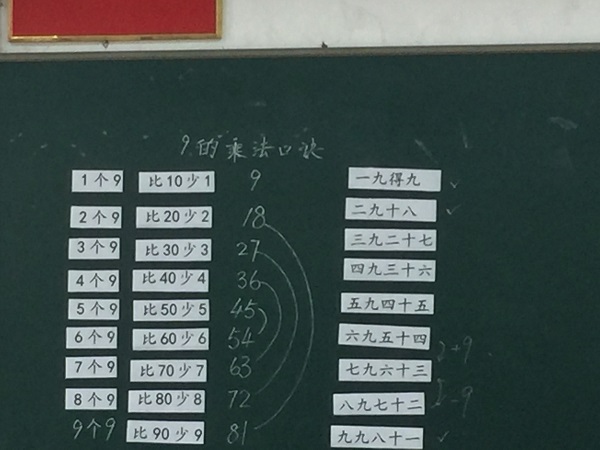 9的乘法口诀
1个9 比10少1 9 一九得九
2个9 比20少2 18 二九十八
3个9 比30少3 27 三九二十七
4个9 比40少4 36 四九三十六
5个9 比50少5 45 五九四十五
6个9 比60少6 54 六九五十四
7个9 比70少7 63 七九六十三
8个9 比80少8 72 八九七十二
9个9 比90少9 81 九九八十一